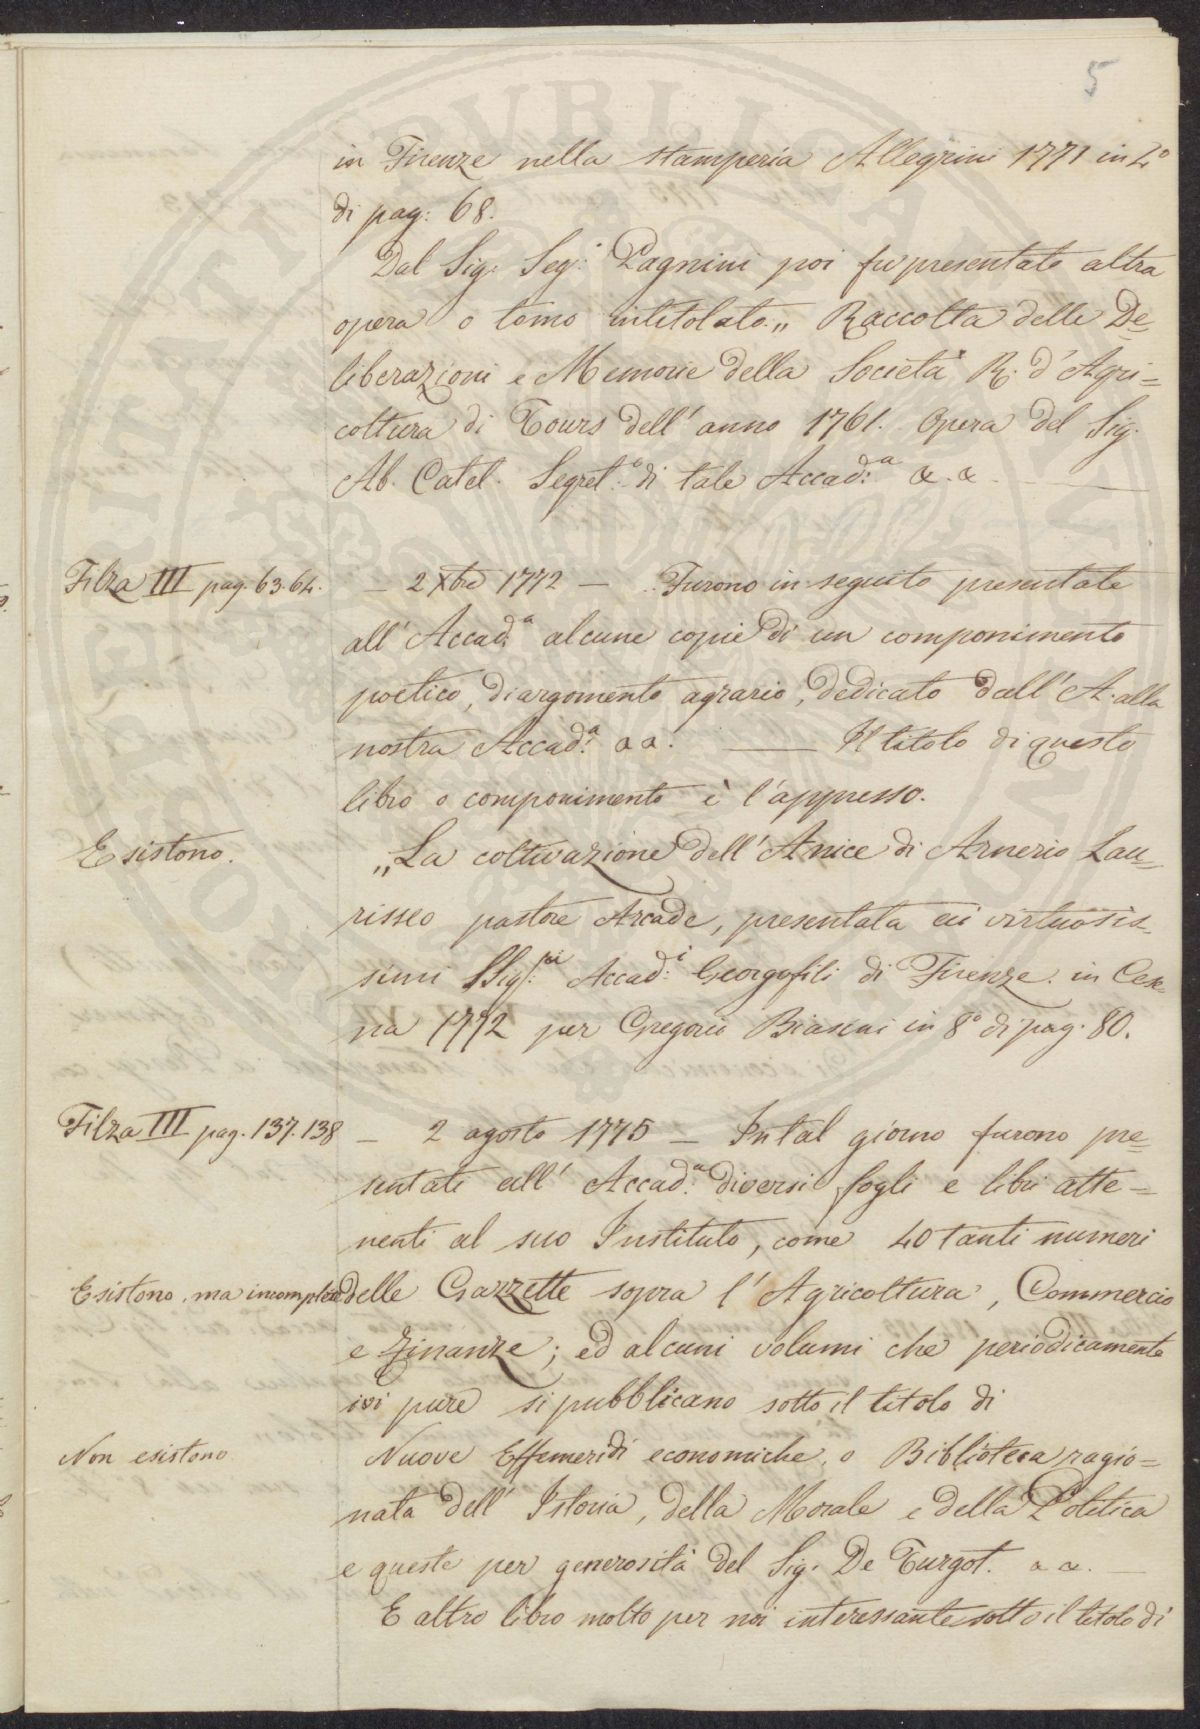 5
in Firenze nella stamperia Allegrini 1771 in 4°
di pag: 68.
Dal Sig: Seg:° Pagnini poi fu presentato altra
opera o tomo intitolato „ Raccolta delle De=
liberazioni e Memorie della Società R. d'Agri=
coltura di Tours dell'anno 1761. Opera del Sig.
Ab. Catel. Segret:° di tale Accad:a
Filza III pag. 63.64.
– 2 Xbre 1772 – Furono in seguito presentate
all'Accad:a alcune copie di un componimento
poetico, di argomento agrario, dedicato dall'A. alla
nostra Accad:a — Il titolo di questo
libro o componimento è l'appresso.
Esistono.
„La coltivazione dell'Anice di Arnerio Lau=
risseo pastore Arcade, presentata ai virtuosis=
simi SSig:ri Accad:i Georgofili di Firenze. in Cese=
na 1772 per Gregorio Biasini in 8° di pag. 80.
Filza III pag. 137.138
– 2 agosto 1775 – In tal giorno furono pre=
sentati all'Accad:a diversi fogli e libri atte=
nenti al suo Instituto, come 40 tanti numeri
Esistono, ma incomplete
delle Gazzette sopra l'Agricoltura, Commercio
e Finanze; ed alcuni volumi che periodicamente
ivi pure si pubblicano sotto il titolo di
Non esistono
Nuove Effemeridi economiche, o Biblioteca ragio=
nata dell'Istoria, della Morale e della Politica
e queste per generosità del Sig. De Turgot.
E altro libro molto per noi interessante sotto il titolo di